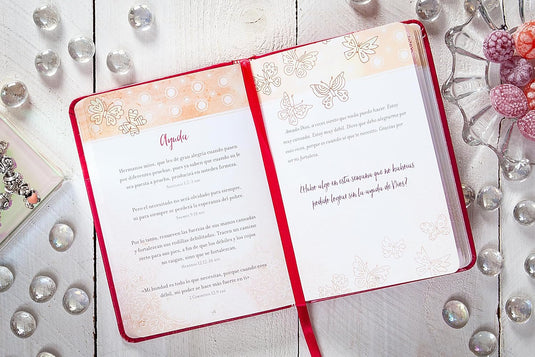 Ayuda
Hermanos míos, que les dé gran alegría cuando pasen
por diferentes pruebas, pues ya saben que cuando su fe
sea puesta a prueba, producirá en ustedes firmeza.
Pero el necesitado no será olvidado para siempre,
ni para siempre se perderá la esperanza del pobre.
Por lo tanto, renueven las fuerzas de sus manos cansadas
y fortalezcan sus rodillas debilitadas. Tracen un camino
recto para sus pies, a fin de que los débiles y los cojos
no caigan, sino que se fortalezcan.
«Mi bondad es todo lo que necesitas, porque cuando eres
débil, mi poder se hace más fuerte en ti»
2 Corintios 12:9
Amado Dios, a veces siento que nada puedo hacer. Estoy
muy cansado. Estoy muy débil. Dices que debo alegrarme por
eso, porque es cuando tú que te necesito. Gracias por
ser mi fortaleza.
¿Hubo algo en esta semana que no hubieras
podido lograr sin la ayuda de Dios?